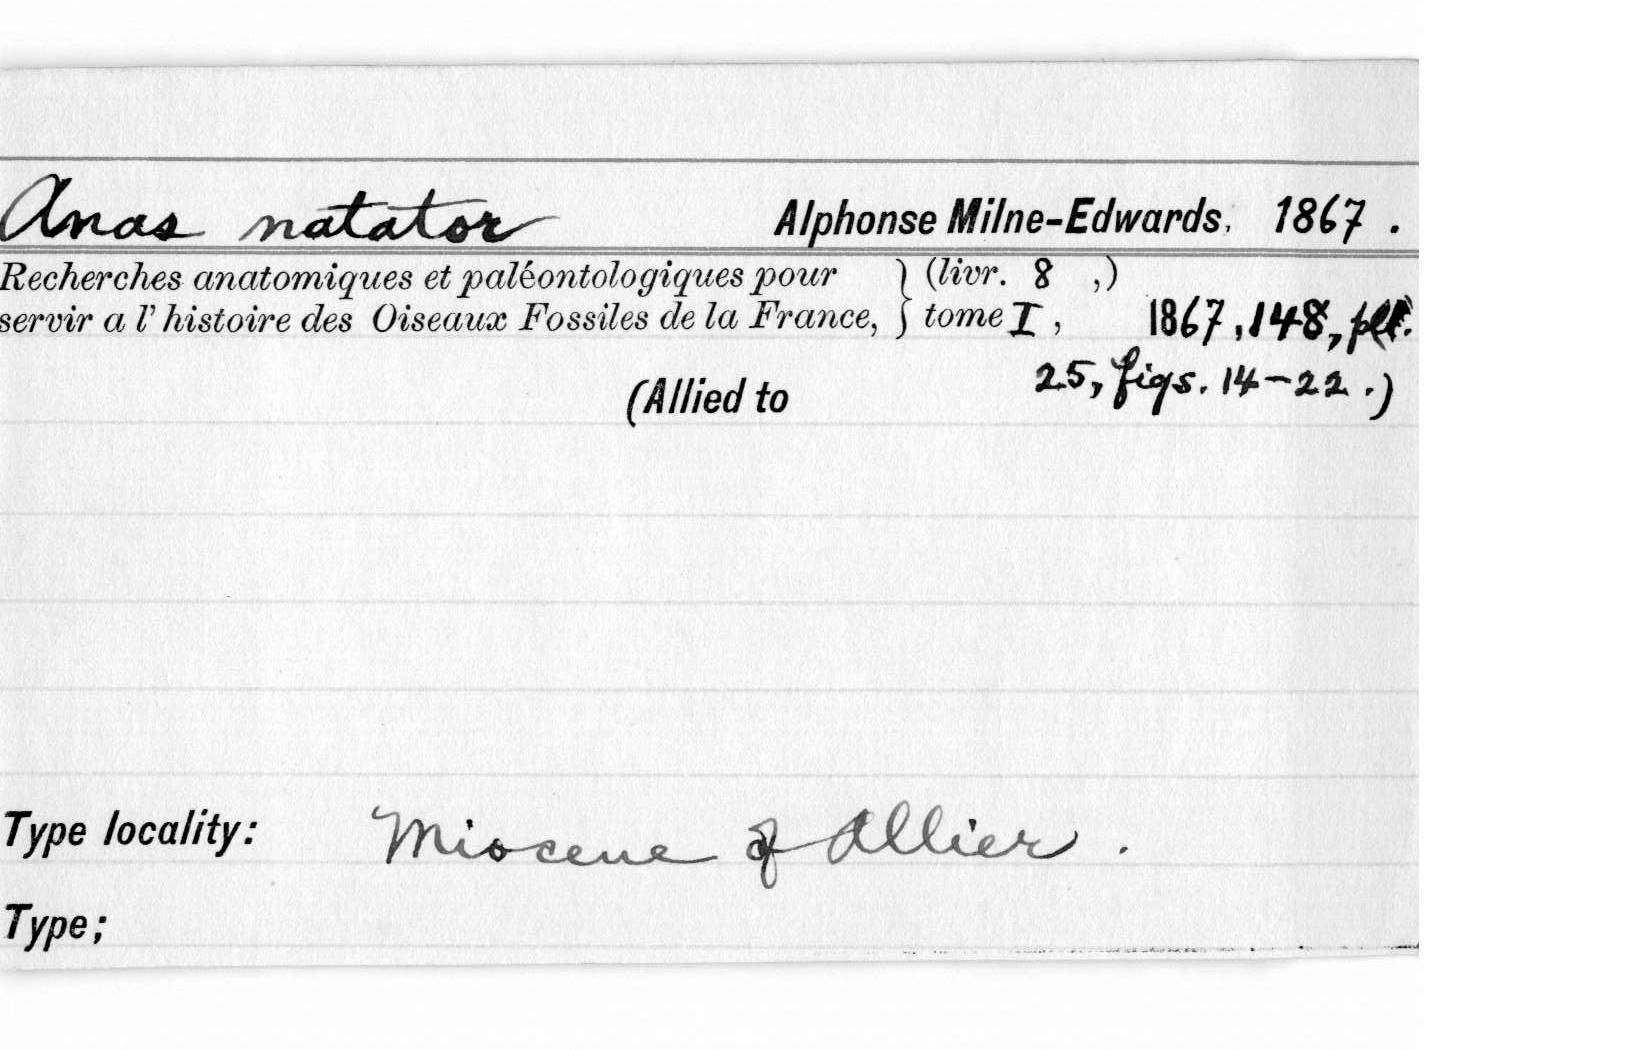 Anas natator Alphonse Milne-Edwards, 1867.
Recherches anatomiques et paléontologiques pour } (livr. 8 ,)
servir a l'histoire des Oiseaux Fossiles de la France, } tome I, 1867, 148, pl.
25, figs. 14-22.)
(Allied to
Type locality: Miocene of Allier.
Type;